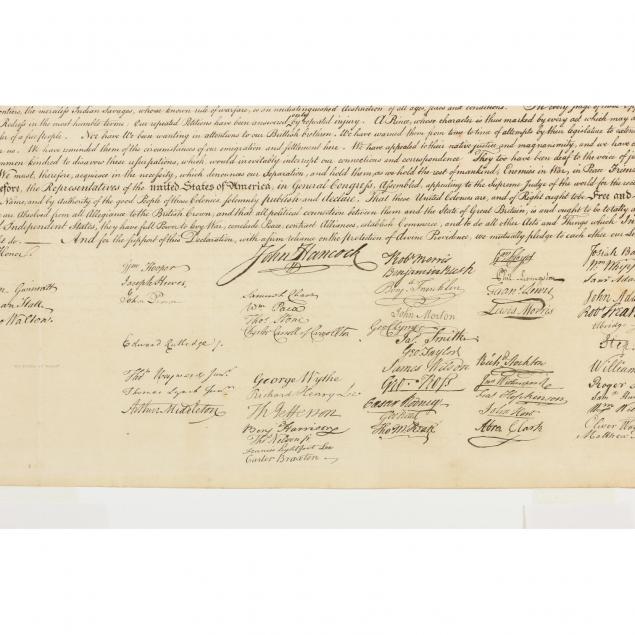 the merciless Indian Savages, whose known rule of warfare, is an undistinguished destruction of all ages, sexes and conditions. In every stage of these
Redress in the most humble terms: Our repeated Petitions have been answered only by repeated injury. A Prince, whose character is thus marked by every act which may
of a free people. Nor have We been wanting in attentions to our Brittish brethren. We have warned them from time to time of attempts by their legislature to
We have reminded them of the circumstances of our emigration and settlement here. We have appealed to their native justice and magnanimity, and we have
kindred to disavow these usurpations, which would inevitably interrupt our connections and correspondence. They too have been deaf to the voice of
We must, therefore, acquiesce in the necessity, which denounces our Separation, and hold them, as we hold the rest of mankind, Enemies in War, in Peace Friends
the Representatives of the united States of America, in General Congress, Assembled, appealing to the Supreme Judge of the world for the
Name, and by Authority of the good People of these Colonies, solemnly publish and declare, That these United Colonies are, and of Right ought to be Free and
are Absolved from all Allegiance to the British Crown, and that all political connection between them and the State of Great Britain, is and ought to be totally
Independent States, they have full Power to levy War, conclude Peace, contract Alliances, establish Commerce, and to do all other Acts and Things which
And for the support of this Declaration, with a firm reliance on the protection of divine Providence, we mutually pledge to each other our
John Hancock
Wm Hooper
Joseph Hewes,
John Penn
Edward Rutledge /.
Thos Heyward Junr.
Thomas Lynch Junr.
Arthur Middleton
Samuel Chase
Wm Paca
Thos Stone
Charles Carroll of Carrollton
George Wythe
Richard Henry Lee
Th Jefferson
Benj Harrison
Thos Nelson jr.
Francis Lightfoot Lee
Carter Braxton
Robt Morris
Benjamin Rush
Benj Franklin
John Morton
Geo Clymer
Jas Smith
Geo Taylor
James Wilson
Geo Ross
Caesar Rodney
Geo Read
Tho M:Kean
Wm Floyd
Phil. Livingston
Frans Lewis
Lewis Morris
Richd Stockton
Jno Witherspoon
Fras Hopkinson
John Hart
Abra Clark
Josiah
John
Step
William
Roger
Oliver
Matthew